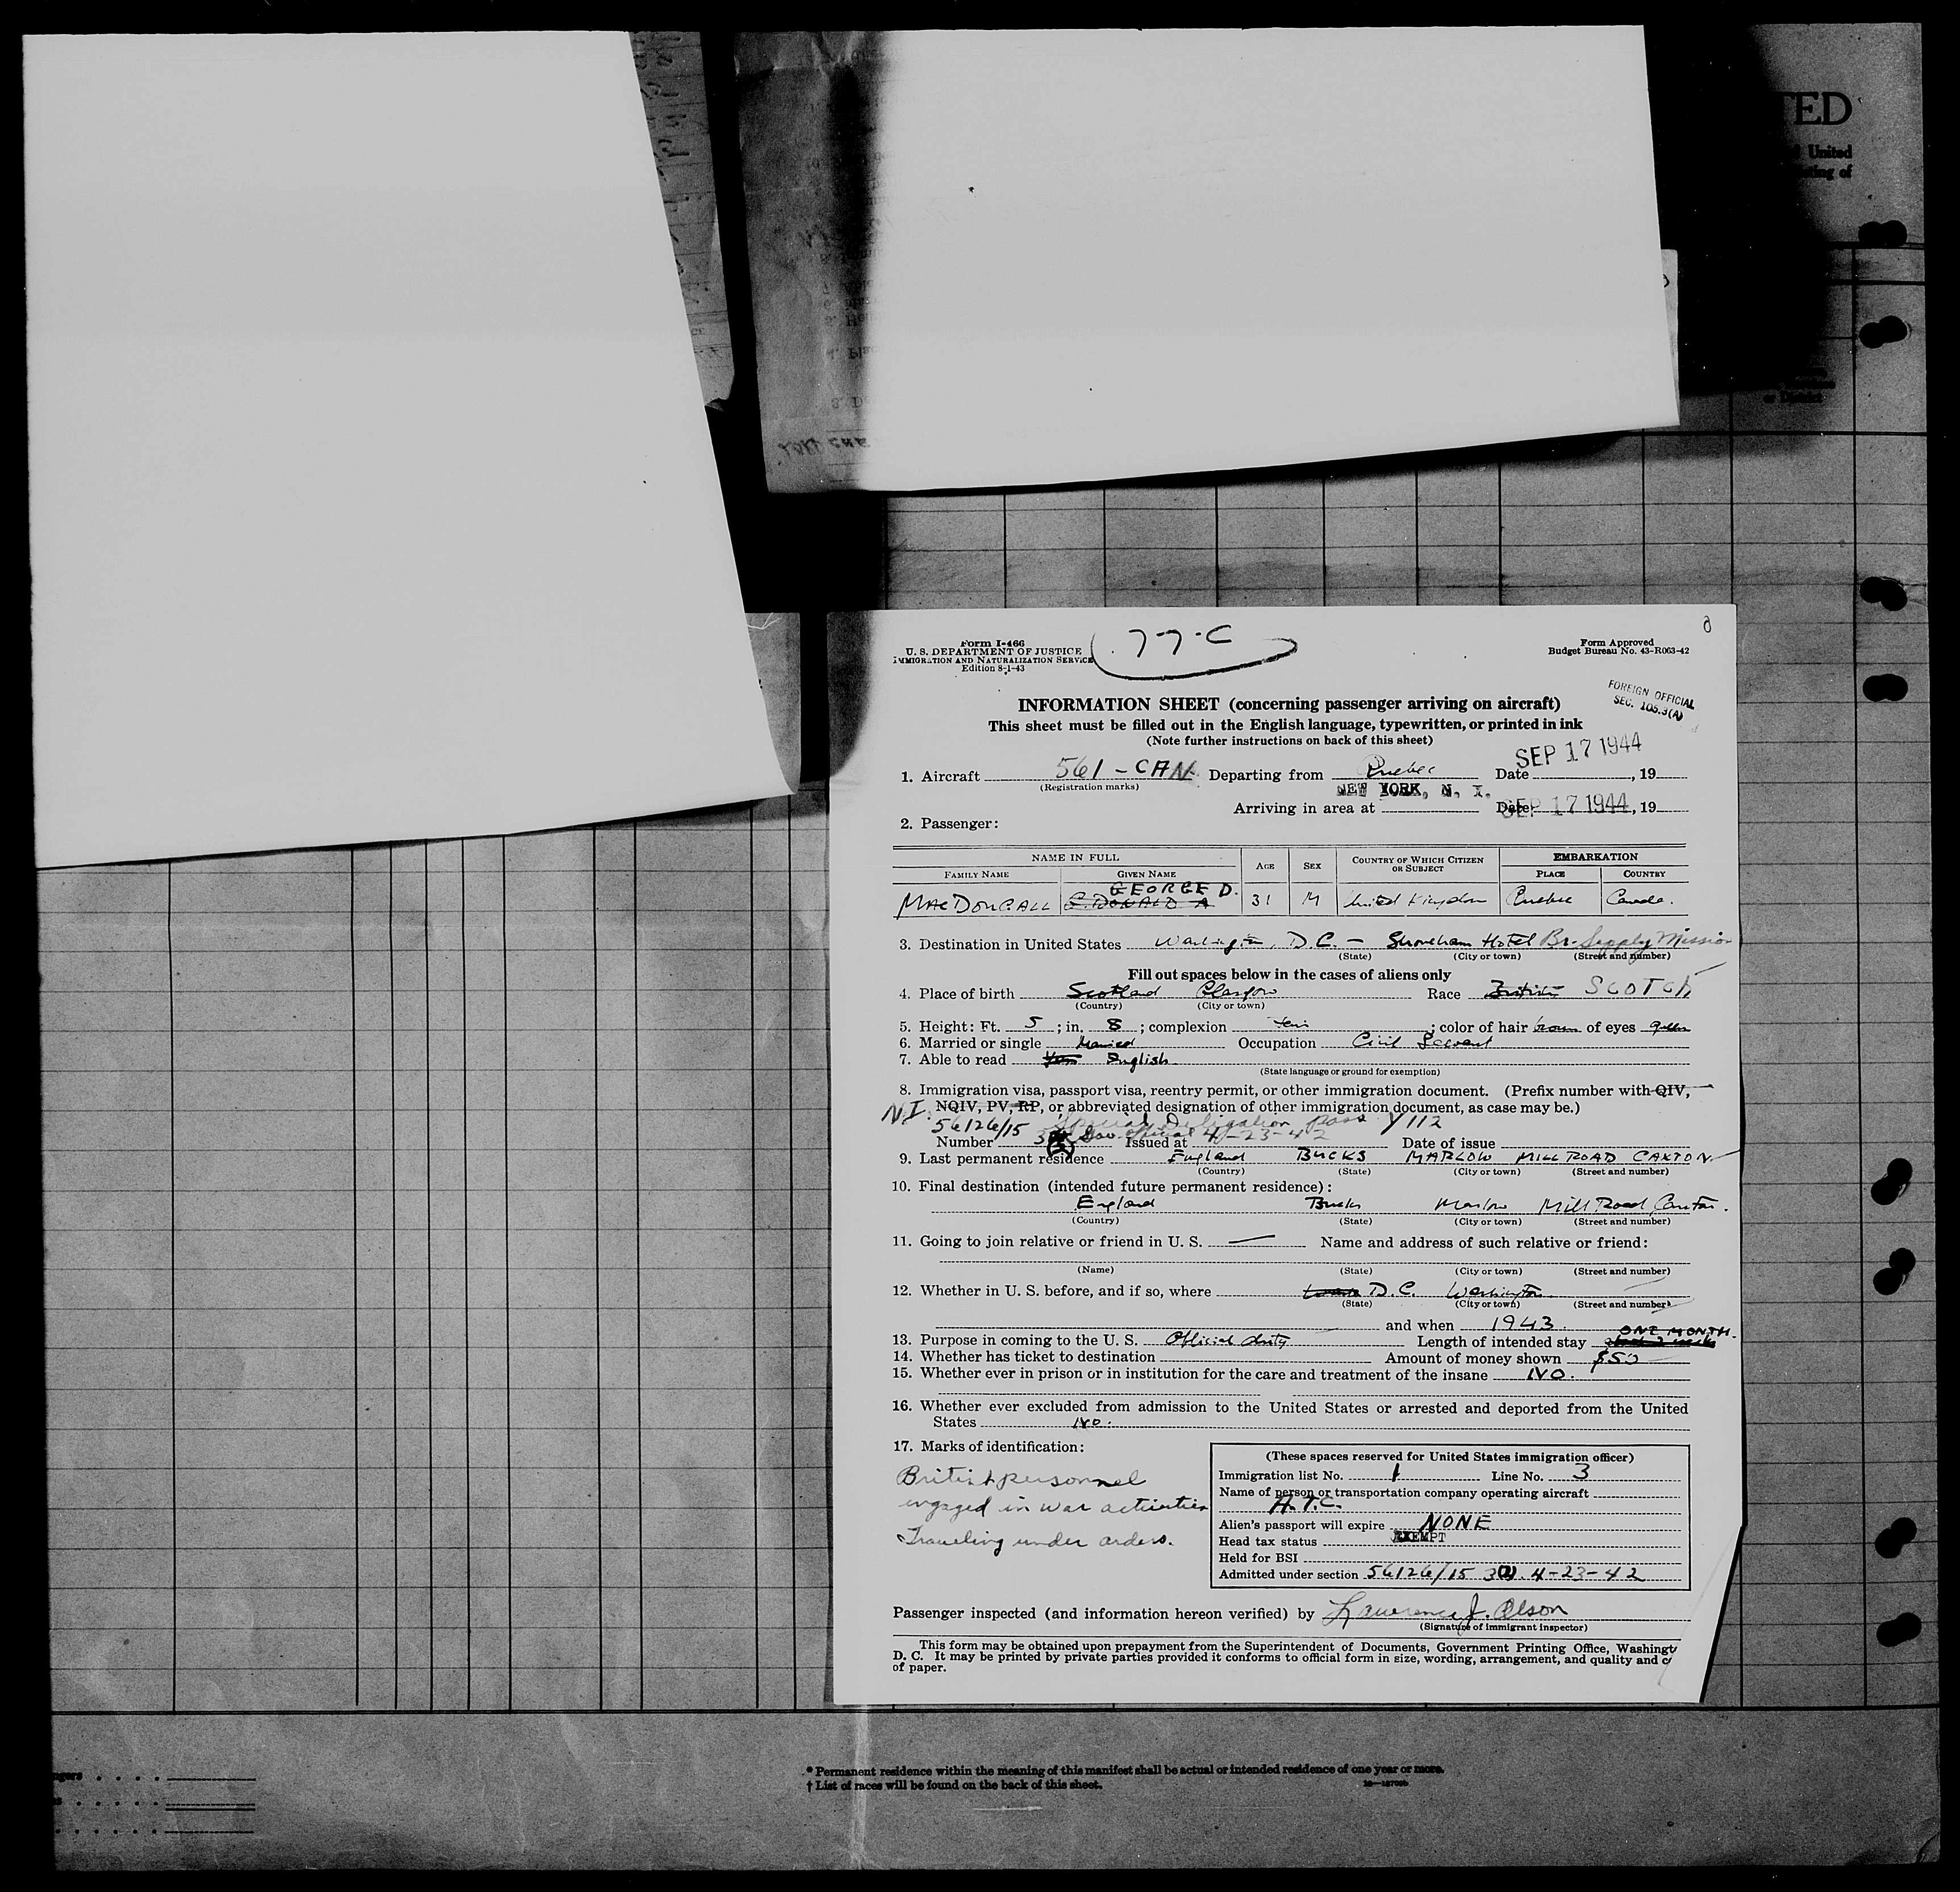 TED
United
Form I-466
U. S. DEPARTMENT OF JUSTICE
IMMIGRATION AND NATURALIZATION SERVICE
Edition 8-1-43
77-C
Form Approved
Budget Bureau No. 43-R063-42
FOREIGN OFFICIAL
SEC. 105.3(A)
INFORMATION SHEET (concerning passenger arriving on aircraft)
This sheet must be filled out in the English language, typewritten, or printed in ink
(Note further instructions on back of this sheet)
SEP 17 1944
1. Aircraft 561-CAN Departing from Quebec Date , 19
(Registration marks)
NEW YORK, N. Y.
Arriving in area at Date SEP 17 1944, 19
2. Passenger:
NAME IN FULL AGE SEX COUNTRY OF WHICH CITIZEN OR SUBJECT EMBARKATION
FAMILY NAME GIVEN NAME PLACE COUNTRY
GEORGE D.
MACDOUGALL G. DONALD A 31 M United Kingdom Quebec Canada.
3. Destination in United States Washington, D.C. - Shoreham Hotel Br. Supply Mission
(State) (City or town) (Street and number)
Fill out spaces below in the cases of aliens only
4. Place of birth Scotland Glasgow Race British SCOTCH
(Country) (City or town)
5. Height: Ft. 5 ; in. 8 ; complexion fair ; color of hair brown of eyes green
6. Married or single Married Occupation Civil Servant
7. Able to read Yes English
(State language or ground for exemption)
8. Immigration visa, passport visa, reentry permit, or other immigration document. (Prefix number with QIV,
NI. NQIV, PV, RP, or abbreviated designation of other immigration document, as case may be.)
56126/15 Special Delegation Pass Y112
Number Gov. Official Issued at 4-23-42 Date of issue
9. Last permanent residence England BUCKS MARLOW MILL ROAD CAXTON
(Country) (State) (City or town) (Street and number)
10. Final destination (intended future permanent residence):
England Bucks Marlow Mill Road, Caxton.
(Country) (State) (City or town) (Street and number)
11. Going to join relative or friend in U. S. — Name and address of such relative or friend:
(Name) (State) (City or town) (Street and number)
12. Whether in U. S. before, and if so, where D.C. Washington
(State) (City or town) (Street and number)
and when 1943.
ONE MONTH.
13. Purpose in coming to the U. S. Official duty Length of intended stay
14. Whether has ticket to destination Amount of money shown $50
15. Whether ever in prison or in institution for the care and treatment of the insane NO.
16. Whether ever excluded from admission to the United States or arrested and deported from the United
States NO.
17. Marks of identification:
British personnel
engaged in war activities
Traveling under orders.
(These spaces reserved for United States immigration officer)
Immigration list No. 1 Line No. 3
Name of person or transportation company operating aircraft
A.T.C.
Alien's passport will expire NONE
Head tax status EXEMPT
Held for BSI
Admitted under section 56126/15 3(2) 4-23-42
Passenger inspected (and information hereon verified) by Lawrence J. Olson
(Signature of immigrant inspector)
This form may be obtained upon prepayment from the Superintendent of Documents, Government Printing Office, Washingt
D. C. It may be printed by private parties provided it conforms to official form in size, wording, arrangement, and quality and c
of paper.
* Permanent residence within the meaning of this manifest shall be actual or intended residence of one year or more.
† List of races will be found on the back of this sheet.